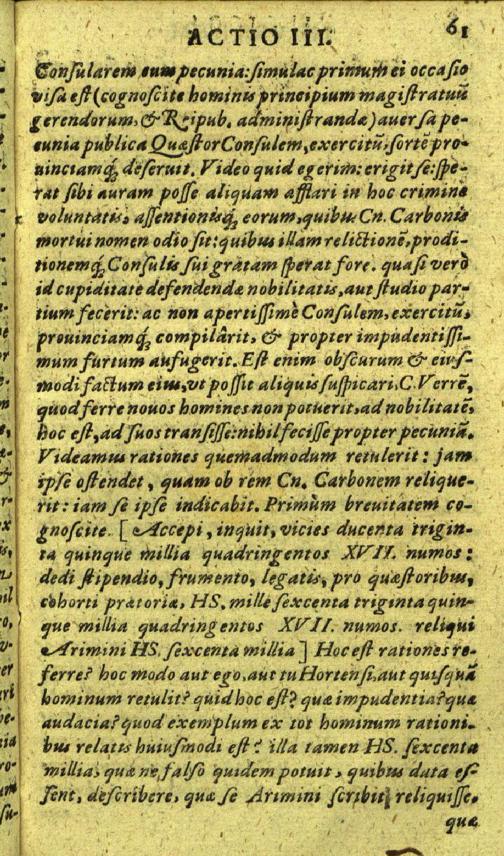 ACTIO III. 61
Consularem eum pecunia: simulac primum ei occasio
visa est (cognoscite hominis principium magistratuũ
gerendorum, & Reipub. administrandæ) aversa pe-
cunia publica Quæstor Consulem, exercitũ, sortẽ pro-
vinciamq́; deseruit. Video quid egerim: erigit se: spe-
rat sibi auram posse aliquam afflari in hoc crimine
voluntatis, assentionisq́; eorum, quibus Cn. Carbonis
mortui nomen odio sit: quibus illam relictionẽ, prodi-
tionemq́; Consulis sui gratam sperat fore. quasi verò
id cupiditate defendendæ nobilitatis, aut studio par-
tium fecerit: ac non apertissimè Consulem, exercitũ,
provinciamq́; compilârit, & propter impudentissi-
mum furtum aufugerit. Est enim obscurum & eius-
modi factum eius, vt possit aliquis suspicari, C. Verrẽ,
quod ferre novos homines non potuerit, ad nobilitatẽ,
hoc est, ad suos transisse: nihil fecisse propter pecuniã.
Videamus rationes quemadmodum retulerit: jam
ipse ostendet, quam ob rem Cn. Carbonem relique-
rit: jam se ipse indicabit. Primùm brevitatem co-
gnoscite. [Accepi, inquit, vicies ducenta trigin-
ta quinque millia quadringentos XVII. numos:
dedi stipendio, frumento, legatis, pro quæstoribus,
cohorti prætoriæ, HS. mille sexcenta triginta quin-
que millia quadringentos XVII. numos. reliqui
Arimini HS. sexcenta millia] Hoc est rationes re-
ferre? hoc modo aut ego, aut tu Hortensi, aut quisquã
hominum retulit? quid hoc est? quæ impudentia? quæ
audacia? quod exemplum ex tot hominum rationi-
bus relatis huiusmodi est? illa tamen HS. sexcenta
millia, quæ ne falsò quidem potuit, quibus data es-
sent, describere, quæ se Arimini scribit reliquisse,
quæ